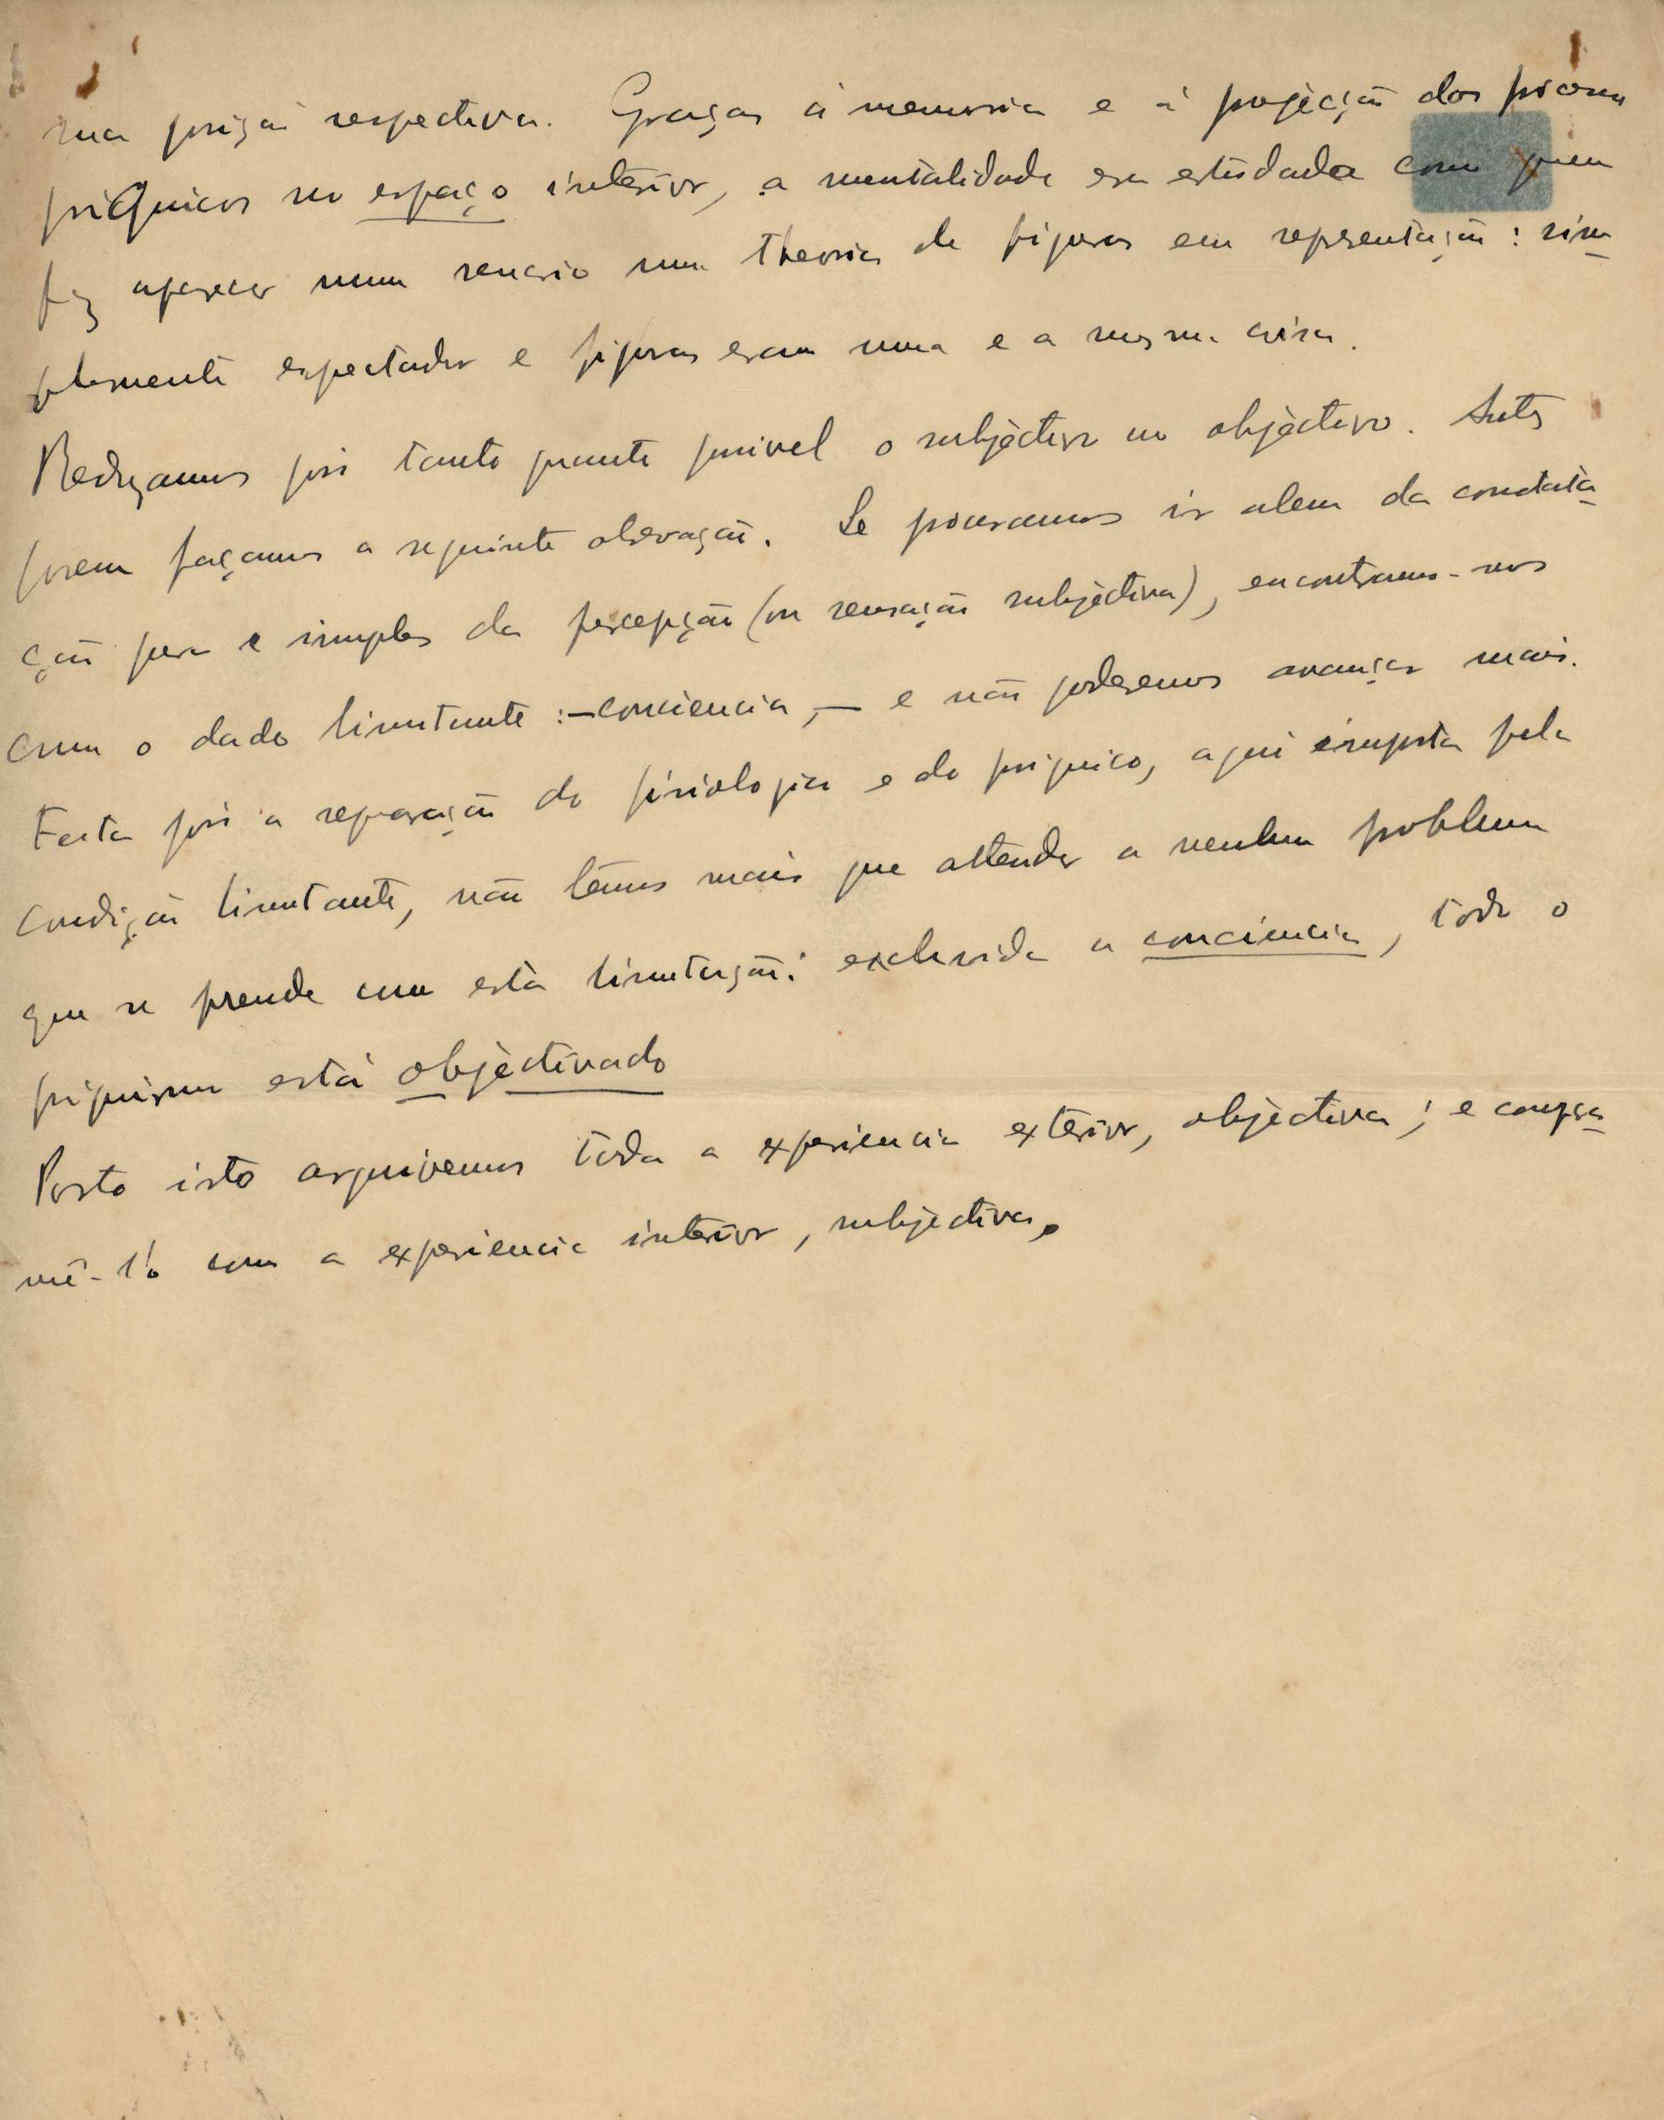 sua posição respectiva. Graças á memoria e á projécção dos
psiquicos no espaço interior, a mentalidade era estudada como quem
faz aparecer num scenario uma theoria de figuras em representação: sim-
plesmente espectador e figuras eram uma e a mesma coisa.
Reduzamos pois tanto quanto possivel o subjéctivo ao objéctivo. Antes
porem façamos a seguinte observação. Se procuramos ir alem da constata-
ção pura e simples da percepção (ou sensação subjéctiva), encontramo-nos
com o dado limitante :—conciencia,— e não poderemos avançar mais.
Feita pois a separação do fisiologico e do psiquico, aqui imposta pela
condição limitante, não têmos mais que attender a nenhum problema
que se prende com esta limitação: excluida a conciencia, todo o
psiquismo está objéctivado
Posto isto arquivemos toda a experiencia exterior, objéctiva; e
com a experiencia interior, subjéctiva.